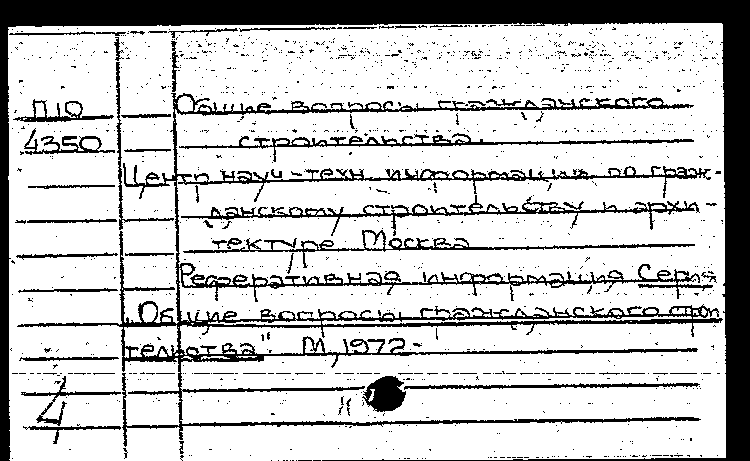 П10 Общие вопросы гражданского
4350 строительства.
Центр науч-техн. информации по граж-
данскому строительству и архи-
тектуре Москва
Реферативная информация Серия
"Общие вопросы гражданского строи
тельства". М, 1972-
4